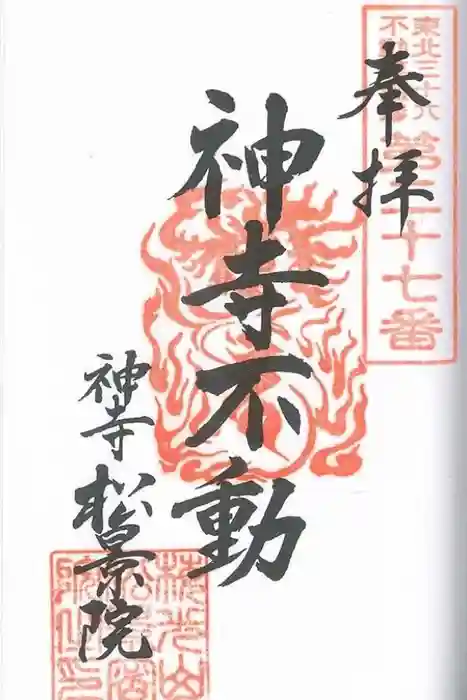 東北三十六
不動
第二十七番
奉拝
神寺不動
神寺 松景院